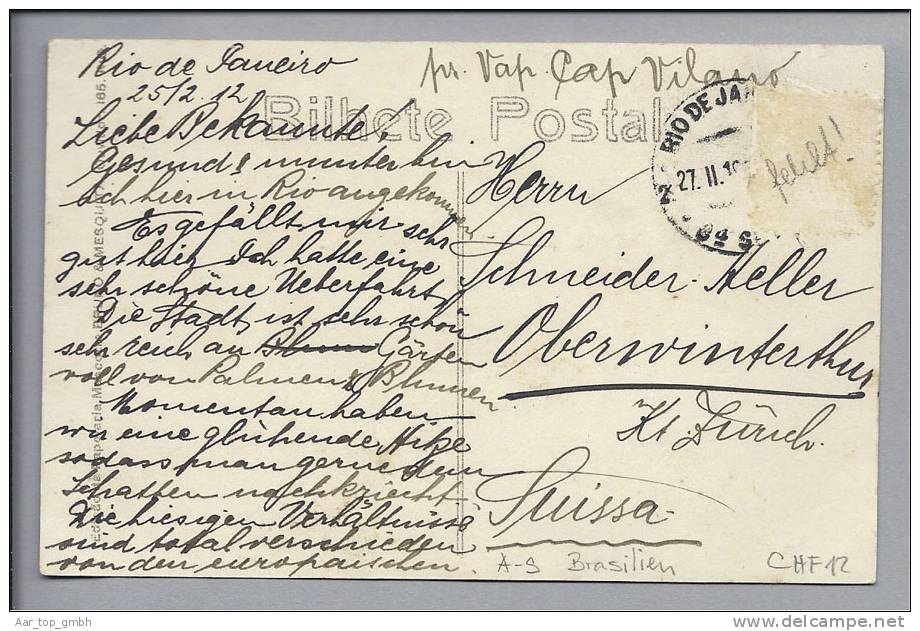 Rio de Janeiro
25/2 12
Liebe Bekannte,
Gesund & munter bin
ich hier in Rio angekommen.
Es gefällt mir sehr
gut hier. Ich hatte eine
sehr schöne Ueberfahrt.
Die Stadt ist sehr schön
sehr reich an Gärten
voll von Palmen & Blumen.
Momentan haben
wir eine glühende Hitze
sodass man gerne dem
Schatten nachkriecht.
Die hiesigen Verhältnisse
sind total verschieden
von den europäischen.
pr. Vap Cap Vilano
Bilhete Postal
RIO DE JA
27. II. 19
fehlt!
Herrn
Schneider-Heller
Oberwinterthur
Kt. Zürich.
Suissa
A-S Brasilien
CHF 12
Aar_top_gmbh
www.delcampe.net